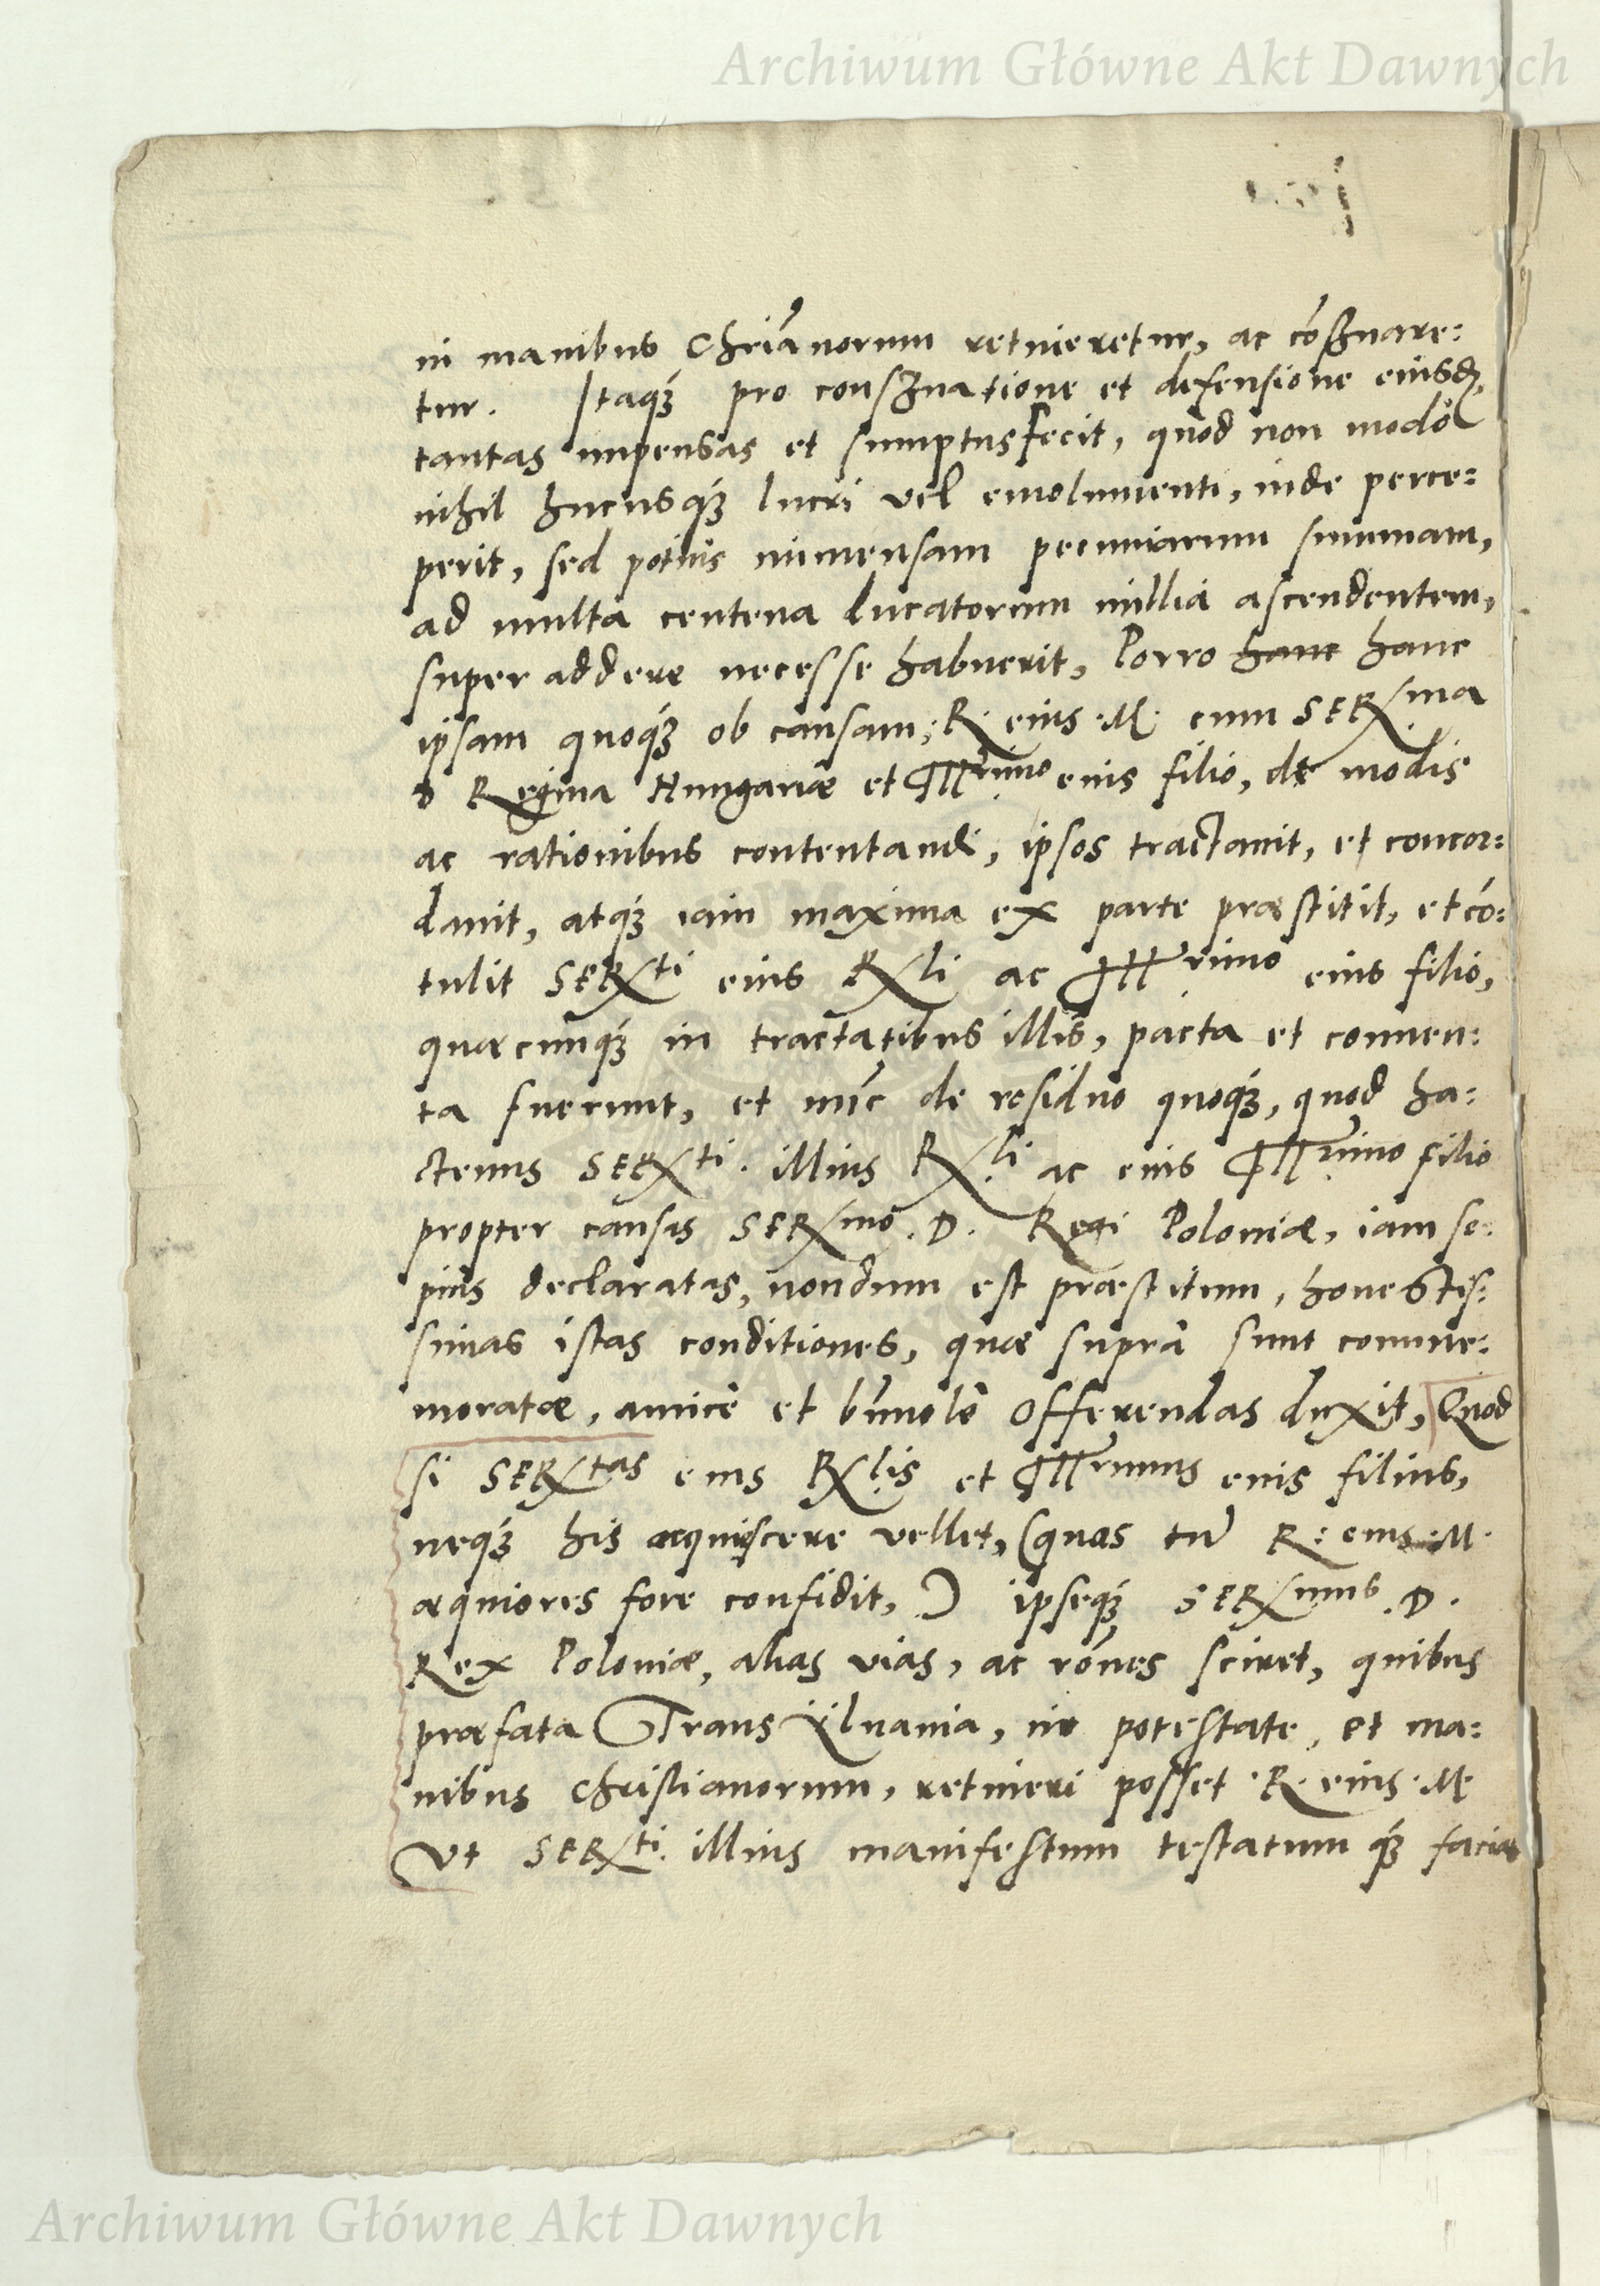 Archiwum Główne Akt Dawnych
in manibus Chrianorum retineretur, ac coservare:
tur. Itaq3 pro conservatione et defensione eiusd.
tantas impensas et sumptus fecit, quod non modo
nihil hucusq3 lucri vel emolumenti, inde perce:
perit, sed potius immensam pecuniarum summam,
ad multa centena ducatorum millia ascendentem,
super addere necesse habuerit, Porro hanc hanc
ipsam quoq3 ob causam, R. eius .M. cum SERma
D Regina Hungariæ et Illrimo eius filio, de modis
ac rationibus contentandi, ipsos tractavit, et concor:
davit, atq3 iam maxima ex parte præstitit, et có:
tulit SERti eius Rli ac Illrimo eius filio,
quæcunq3 in tractatibus illis, pacta et conven:
ta fuerunt, et nuc de residuo quoq3, quod ha:
ctenus SERti. illius Rli ac eius Illrimo filio
propter causas SERmo. D. Regi Poloniæ, iam se:
pius declaratas, nondum est præstitum, honestis:
simas istas conditiones, quæ supra sunt comme:
moratæ, amicè et bnvolè offerendas duxit, Quod
si SERtas eius Rlis et Illrimus eius filius,
neq3 his acquiscere vellet, (quas tn R: eius .M.
æquiores fore confidit,) ipseq3 SERmus .D.
Rex Poloniæ, alias vias, ac rónes sciret, quibus
præfata Transÿlvania, in potestate, et ma:
nibus Christianorum, retineri posset .R. eius .M.
Vt SERti. illius manifestum testatum q3 facia
Archiwum Główne Akt Dawnych